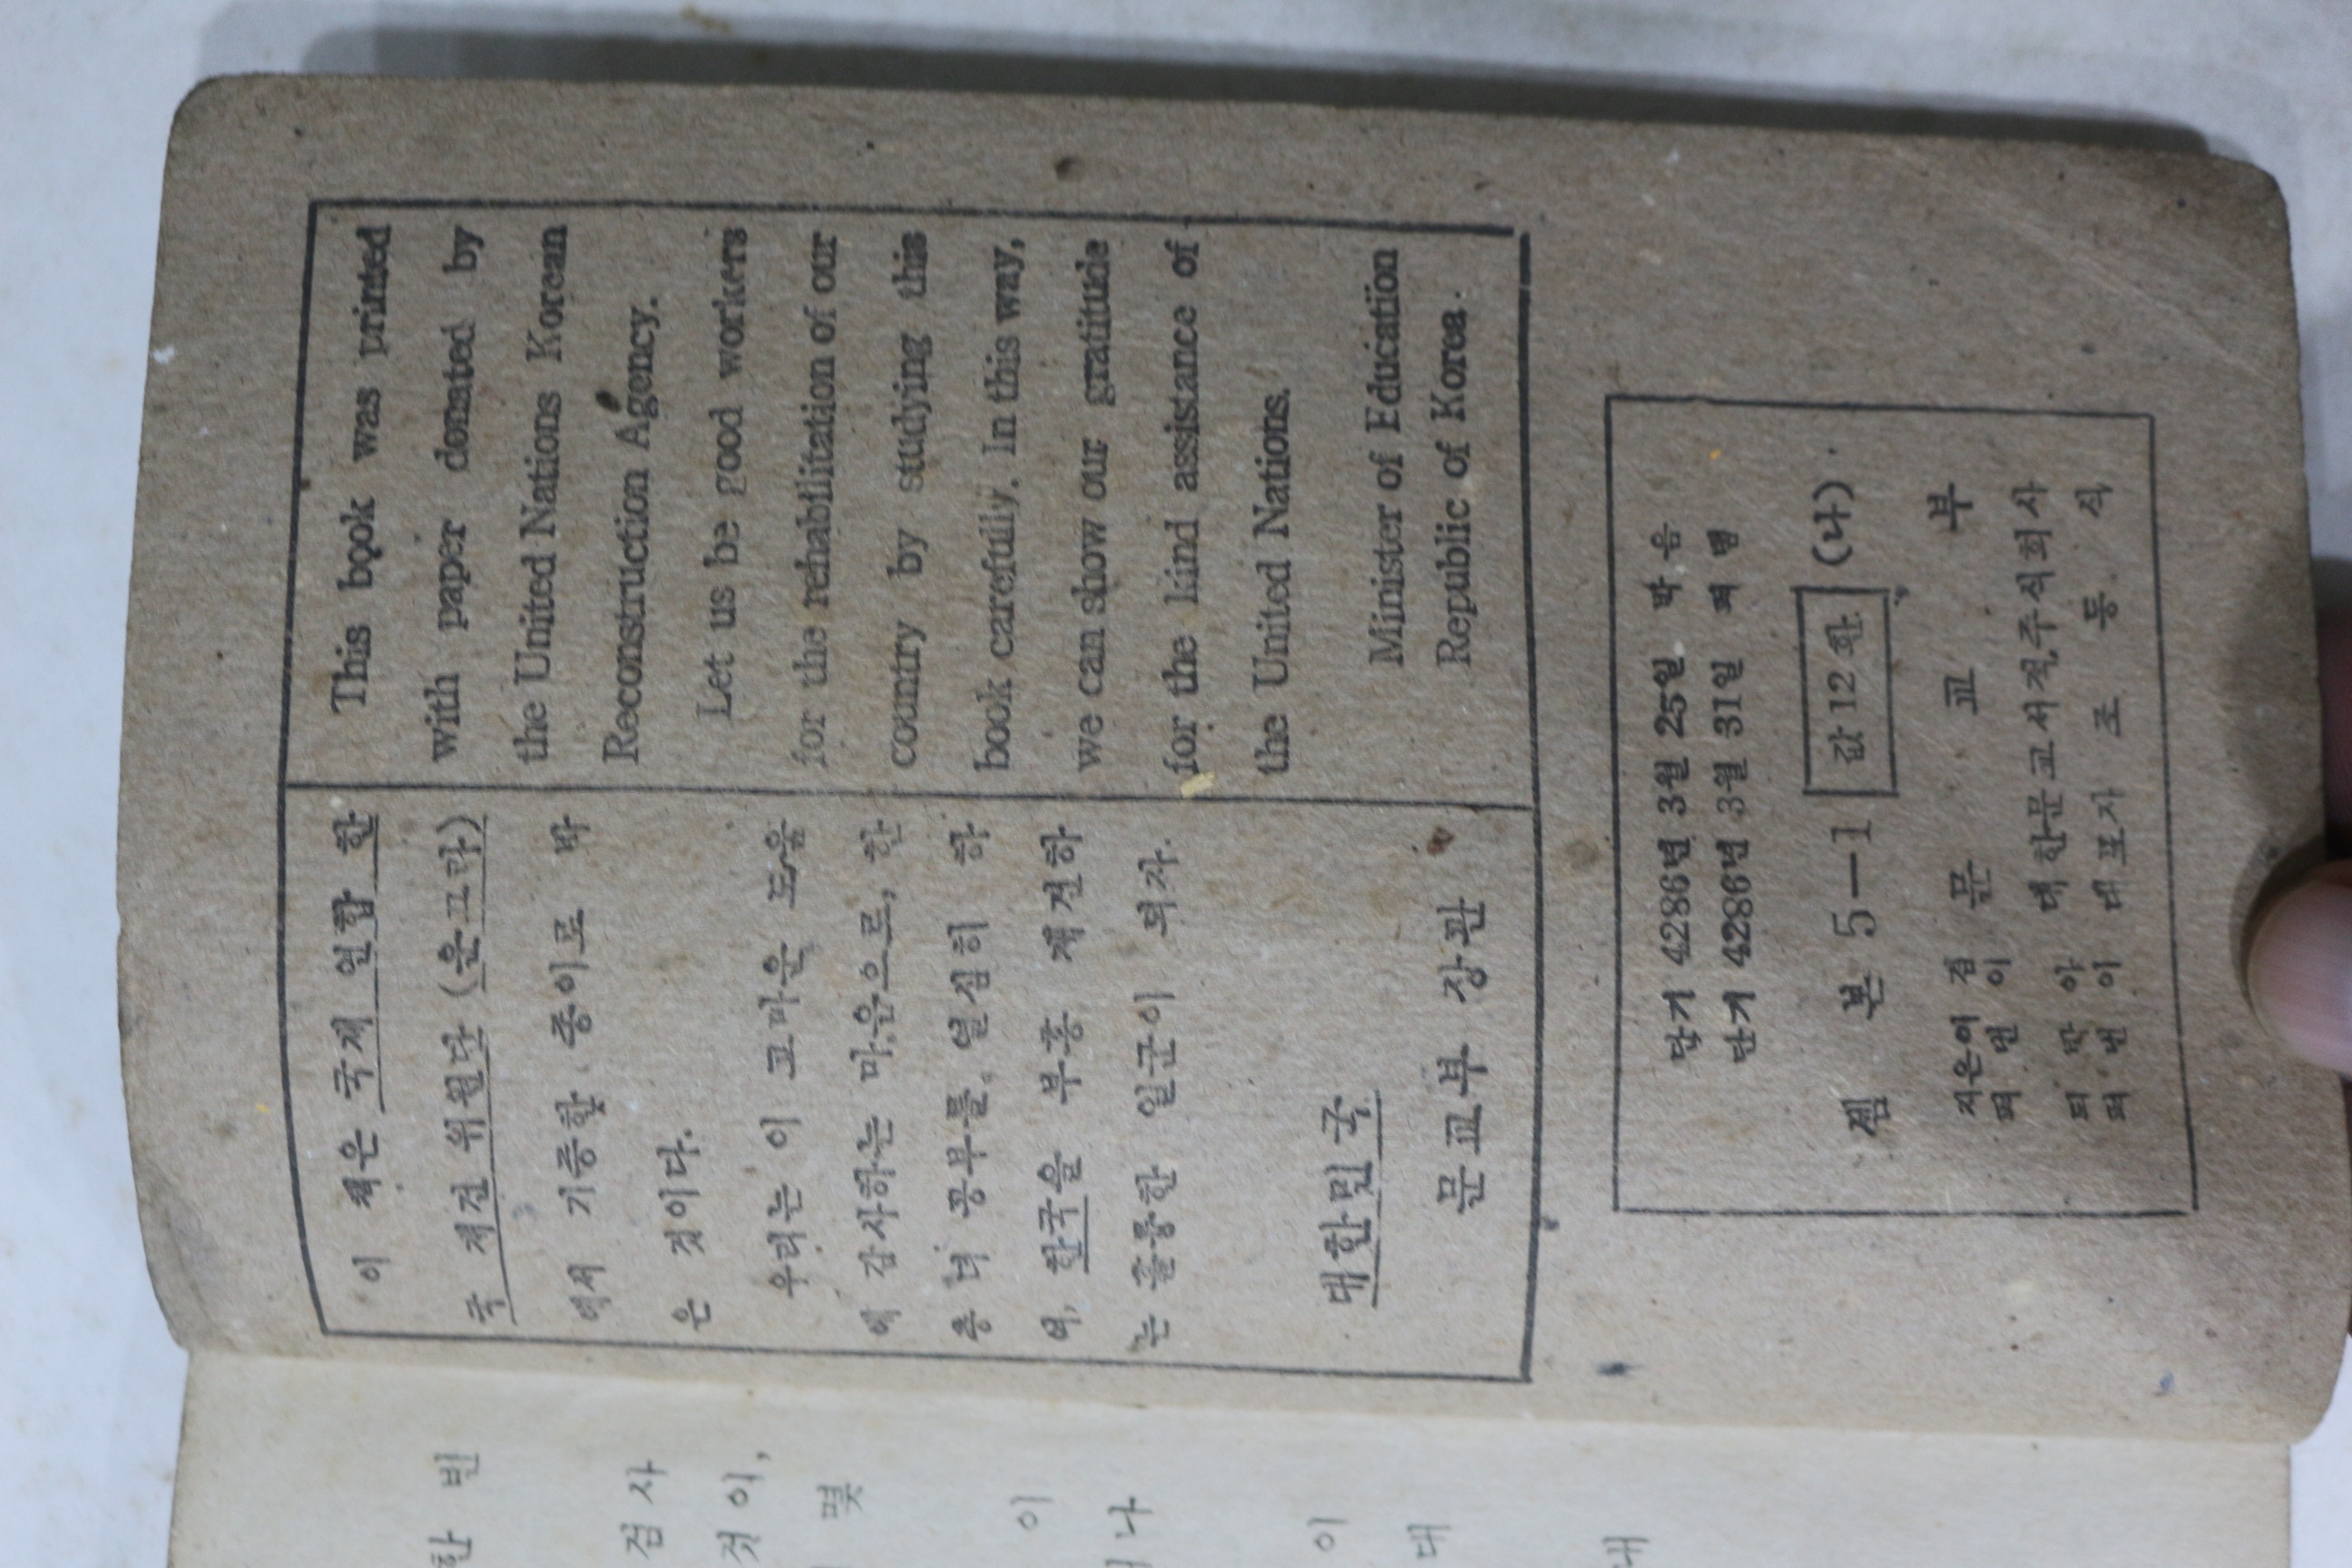 이 책은 국제 연합 한
국 재건 위원단 (운끄라)
에서 기증한 종이로 박
은 것이다.
우리는 이 고마운 도움
에 감사하는 마음으로, 한
층 더 공부를 열심히 하
여, 한국을 부흥 재건하
는 훌륭한 일군이 되자.
대한민국
문교부 장관
This book was printed
with paper donated by
the United Nations Korean
Reconstruction Agency.
Let us be good workers
for the rehabilitation of our
country by studying this
book carefully. In this way,
we can show our gratitude
for the kind assistance of
the United Nations.
Minister of Education
Republic of Korea.
단기 4286년 3월 25일 박음
단기 4286년 3월 31일 펴냄
셈본 5—1 값 12환 (나)
지은이 겸 펴낸이 문교부
되박아 펴낸이 대한문교서적주식회사
대표자 조동식
한 빈
점 사
것 이,
몇
이
나
이
대
내